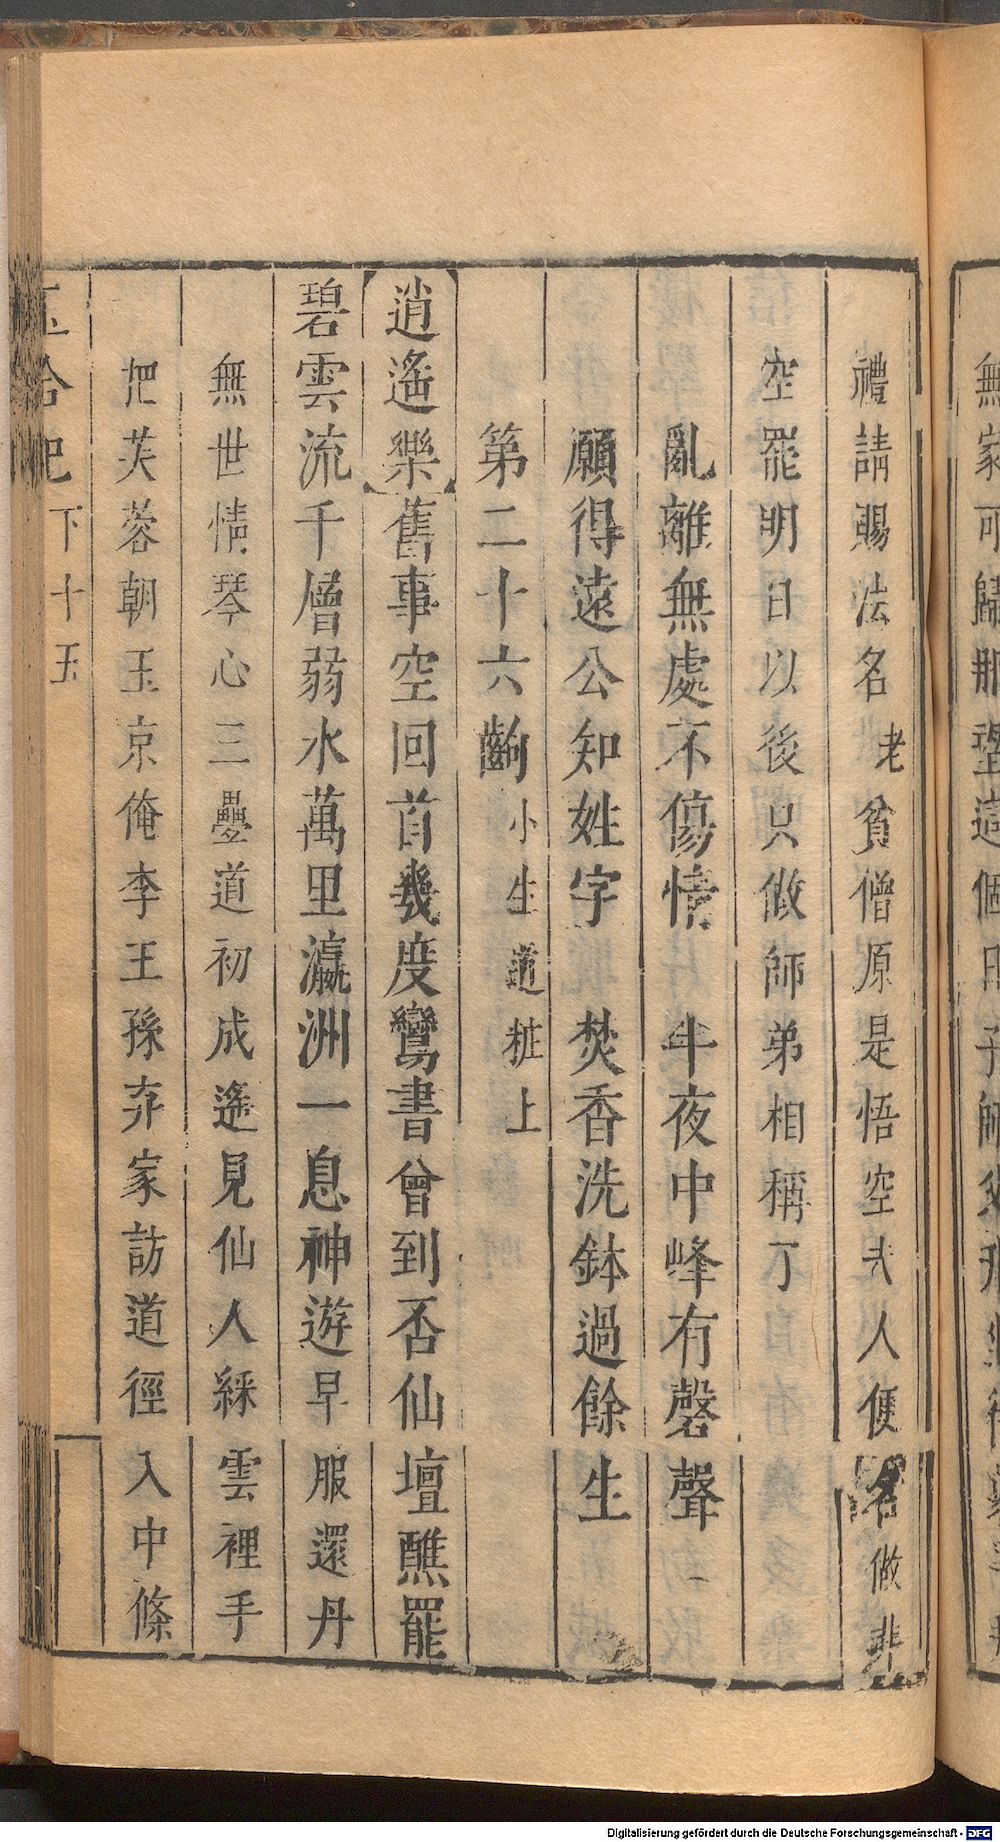 無家可歸那望這個日子師父
禮請賜法名老貧僧原是悟空大人便名做非
空罷明日以後只做師弟相稱了
亂離無處不傷情 半夜中峰有磬聲
願得遠公知姓字 焚香洗鉢過餘生
第二十六齣小生道粧上
逍遙樂舊事空回首幾度鸞書曾到否仙壇醮罷
碧雲流千層弱水萬里瀛洲一息神遊早服還丹
無世情琴心三疊道初成遙見仙人綵雲裡手
把芙蓉朝玉京俺李王孫弃家訪道徑入中條
玉合記下十五
Digitalisierung gefördert durch die Deutsche Forschungsgemeinschaft - DFG